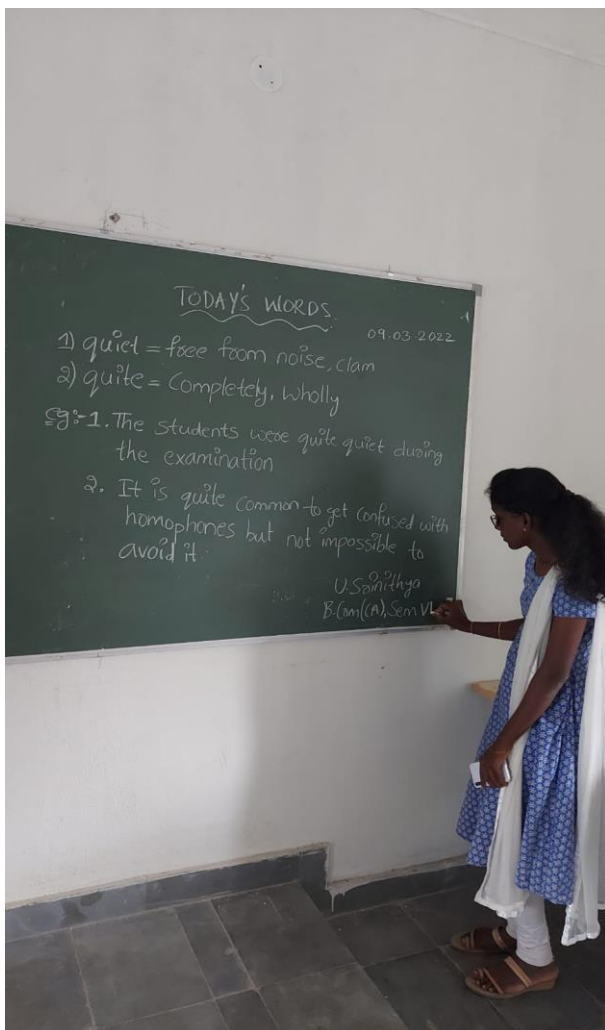 TODAY'S WORDS
09.03.2022
1) quiet = free from noise, clam
2) quite = Completely, Wholly
Eg:-1. The students were quite quiet during
the examination
2. It is quite common to get confused with
homophones but not impossible to
avoid it.
U. Sainithya
B.Com(CA), Sem VI